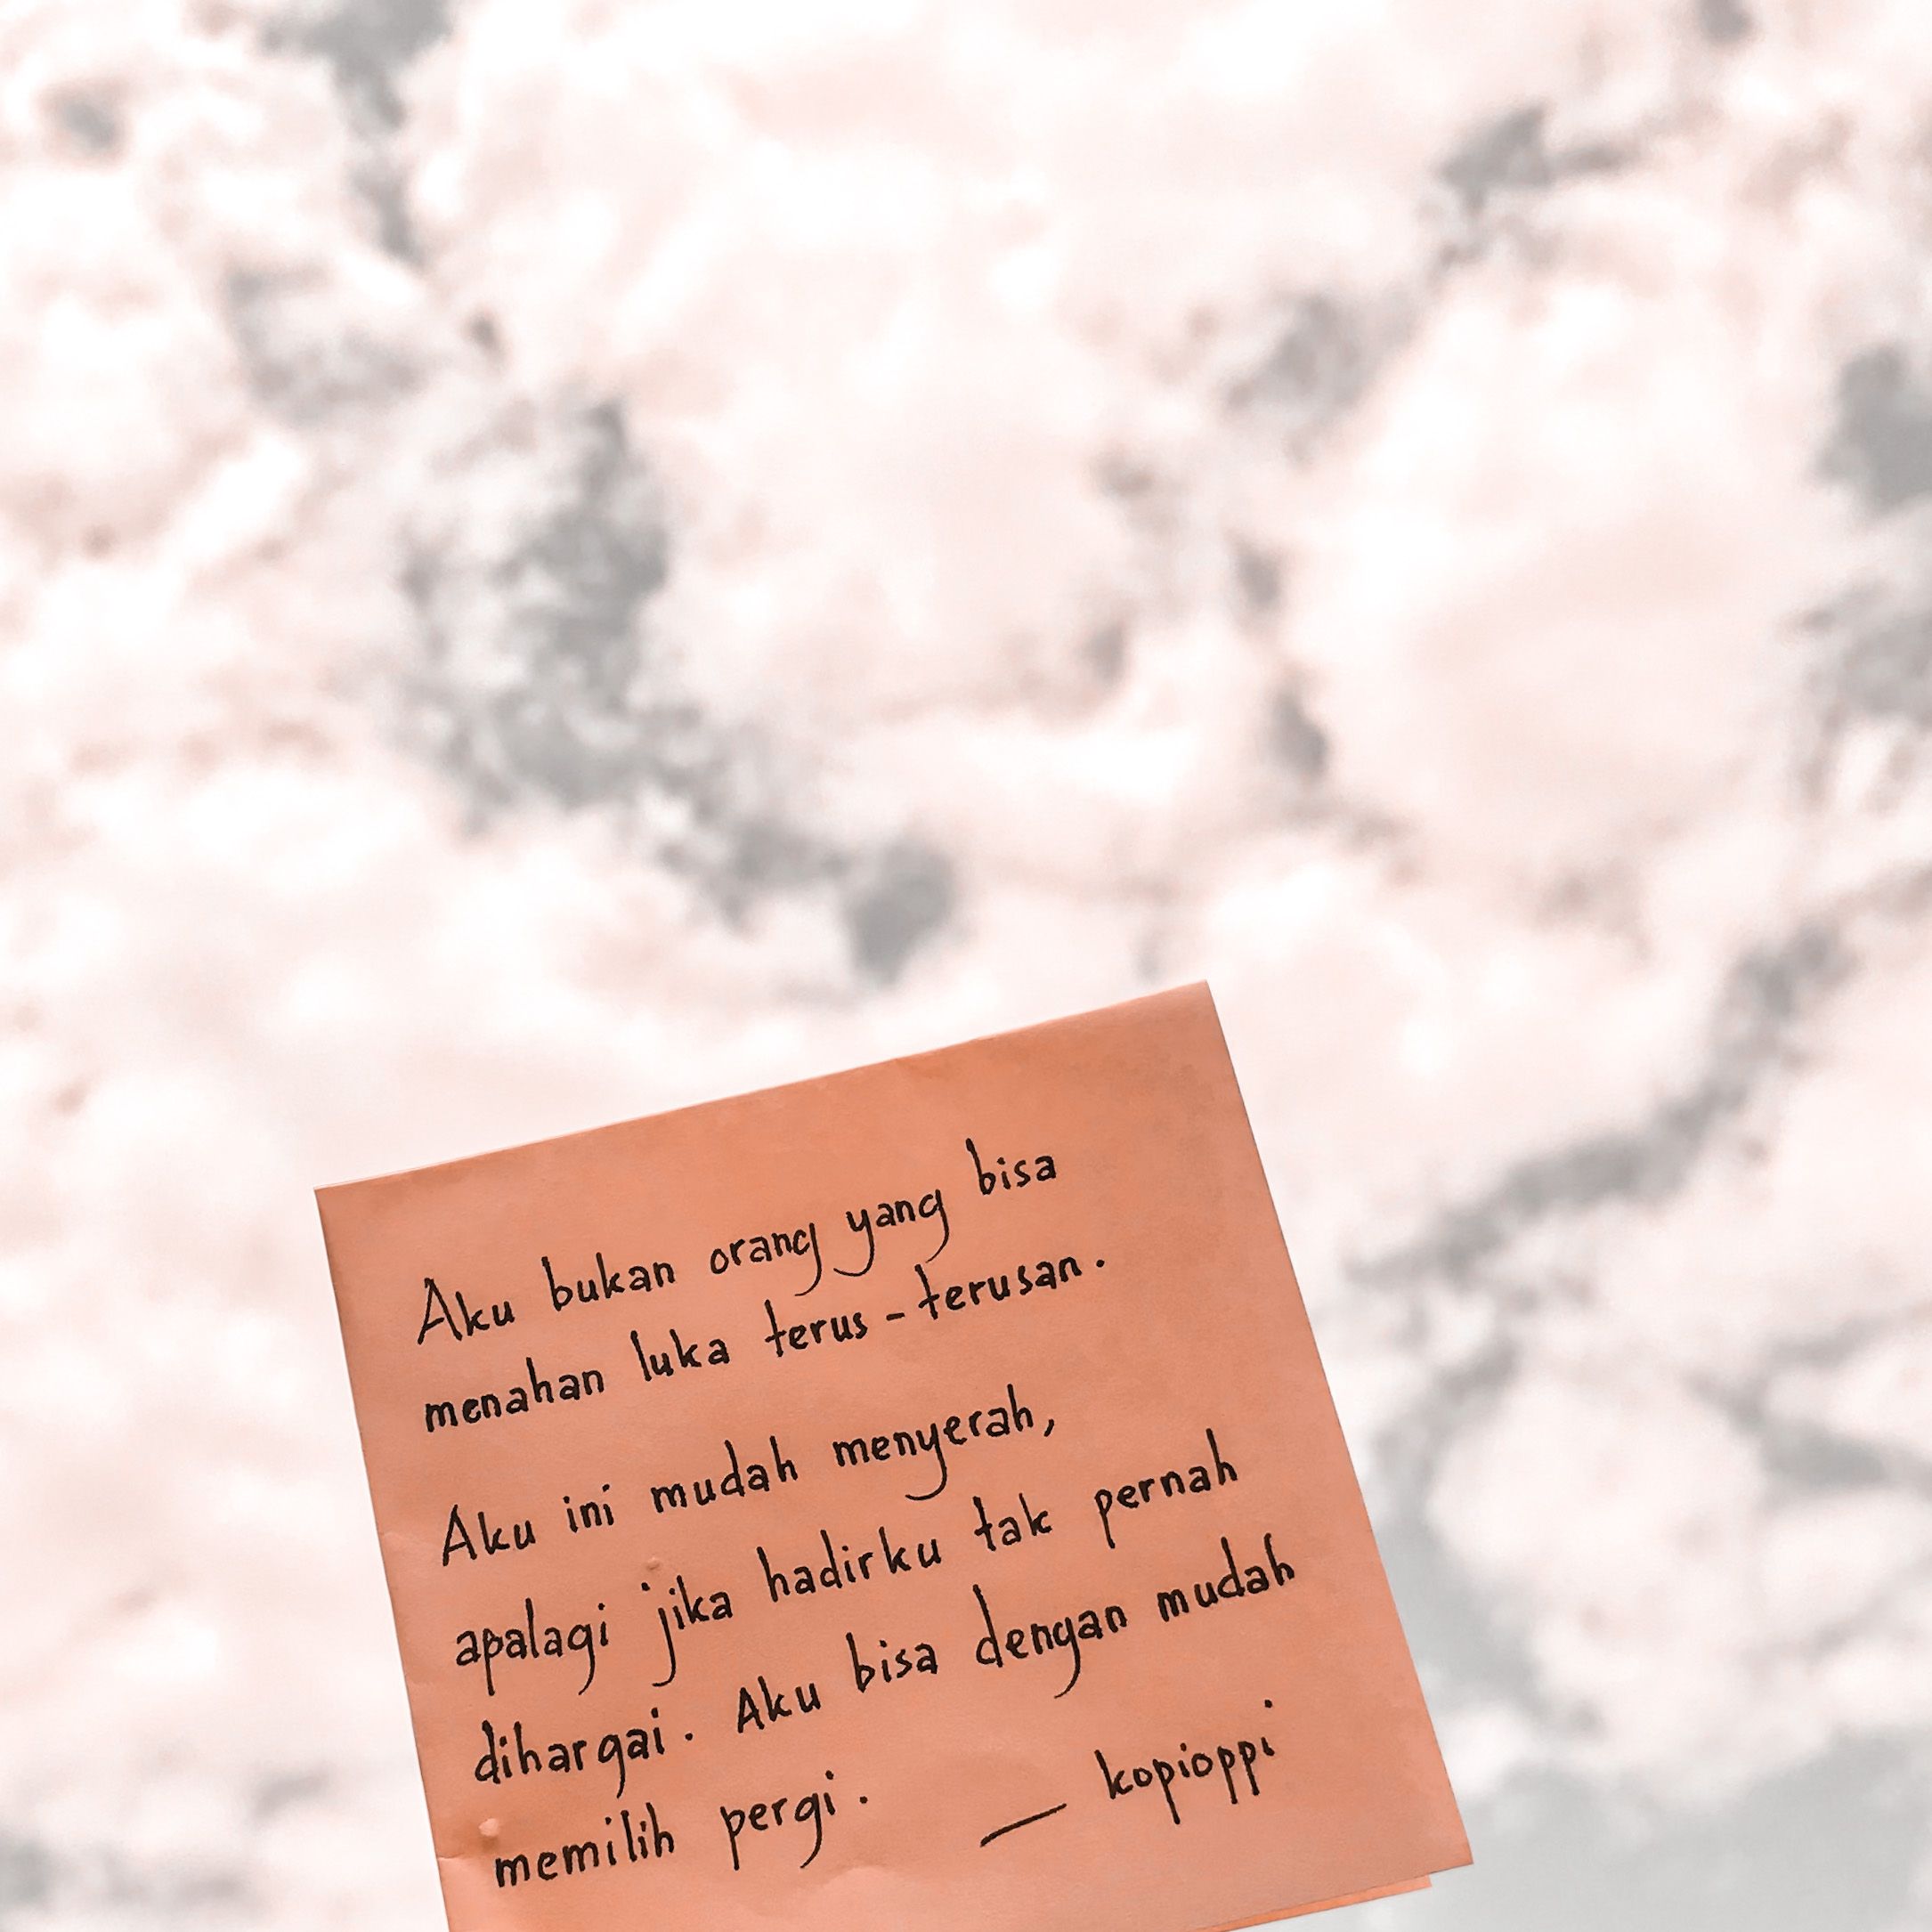 Aku bukan orang yang bisa
menahan luka terus-terusan.
Aku ini mudah menyerah,
apalagi jika hadirku tak pernah
dihargai. Aku bisa dengan mudah
memilih pergi.
— kopioppi